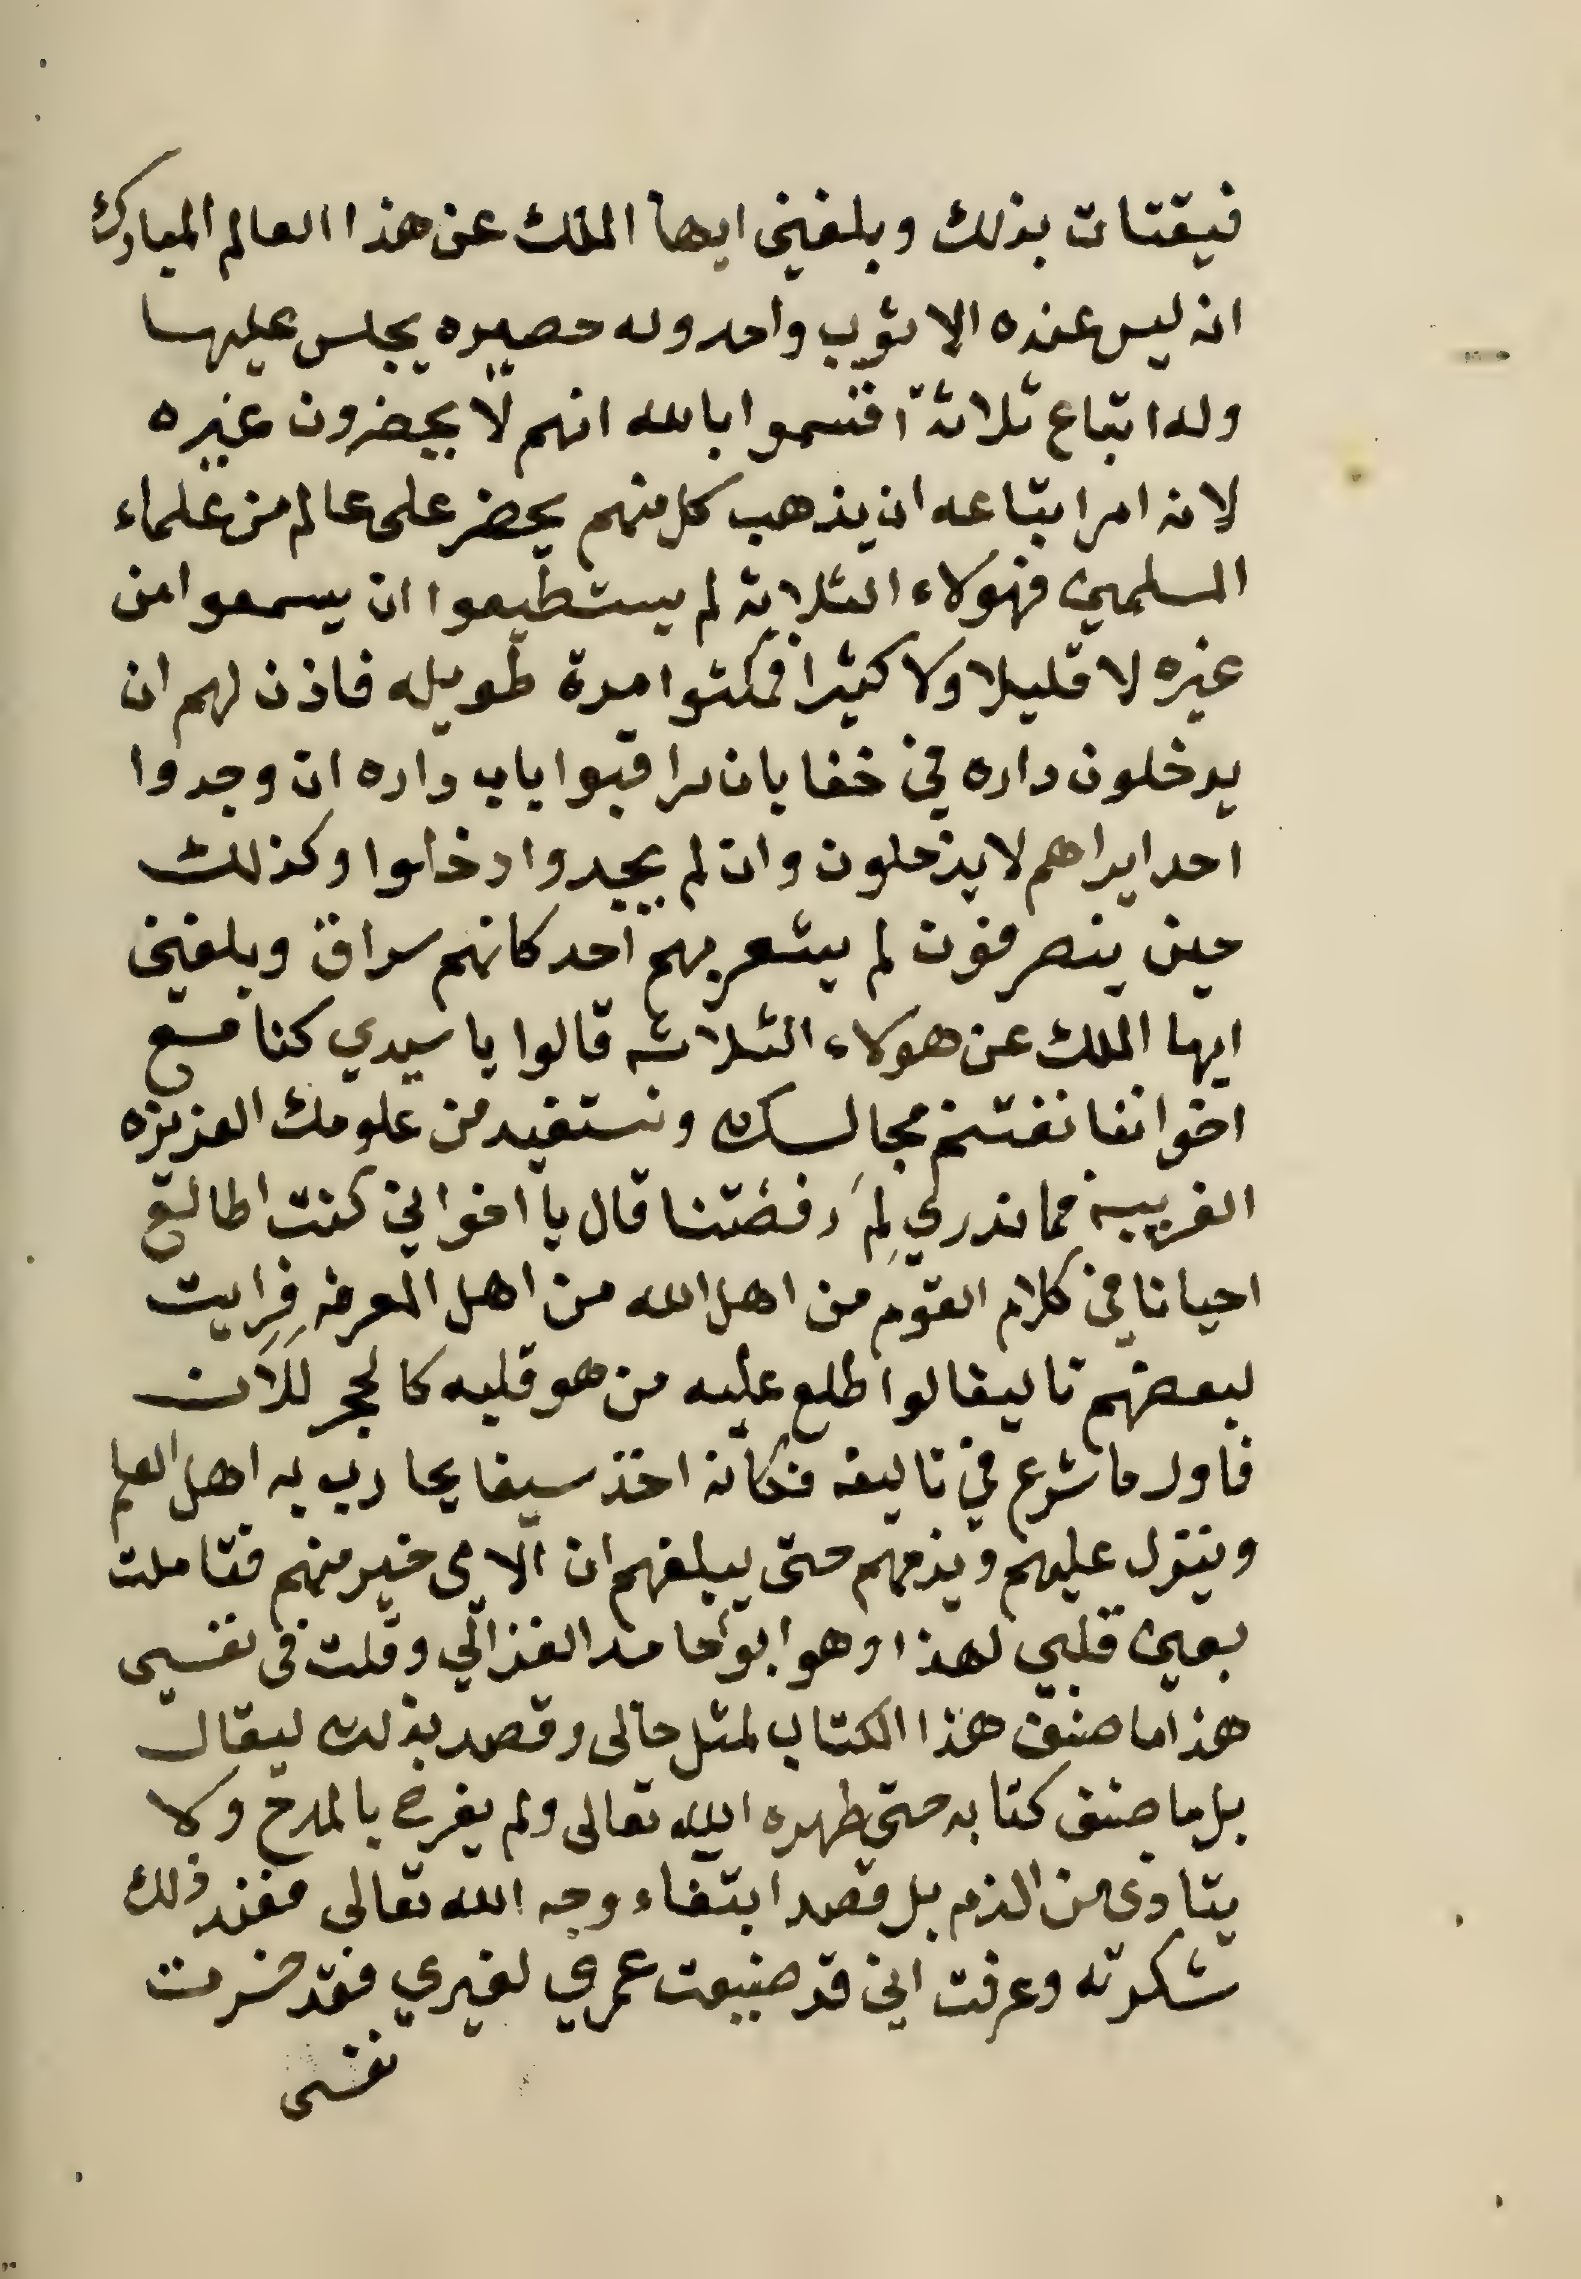 فيقتات بذلك وبلغني ايها الملك عن هذا العالم المبارك
انه ليس عنده الا ثوب واحد وله حصيره يجلس عليها
وله اتباع ثلاثة اقسموا بالله انهم لا يحضرون غيره
لانه امر اتباعه ان يذهب كل منهم يحضر على عالم من علماء
المسلمين فهولاء الثلاثة لم يستطيعوا ان يسمعوا من
غيره لا قليلا ولا كثيرا فمكثوا مدة طويله فاذن لهم ان
يدخلون داره في خفا بان يراقبوا باب داره ان وجدوا
احد ايراهم لا يدخلون وان لم يجدوا دخلوا وكذلك
حين ينصرفون لم يشعر بهم احد كانهم سراق وبلغني
ايها الملك عن هولاء الثلاثه قالوا يا سيدي كنا مع
اخواننا نغتنم مجالسك ونستفيد من علومك العزيزه
الغريبه فما ندري لِمَ رفضتنا قال يا اخواني كنت اطالع
احيانا في كلام القوم من اهل الله من اهل المعرفه فرايت
لبعضهم تاليفا لو اطلع عليه من هو قلبه كالحجر للان
فاول ما شرع في تاليفه فكانه اخذ سيفا يحارب به اهل العلم
وينزل عليهم ويذمهم حتى يبلغهم ان الامي خير منهم فتاملت
بعين قلبي لهذا وهو ابو حامد الغزالي وقلت في نفسي
هذا ما صنف هذا الكتاب لمثل حالي وقصد بذلك ليقال
بل ما صنف كتابه حتى طهره الله تعالى ولم يفرح بالمدح ولا
يتاذى من الذم بل قصد ابتغاء وجه الله تعالى فعند ذلك
شكرته وعرفت اني قد ضيعت عمري لغيري فقد خسرت
نفسي